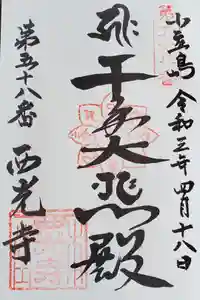 小豆島 令和三年四月十八日
千手大悲殿
第五十八番 西光寺